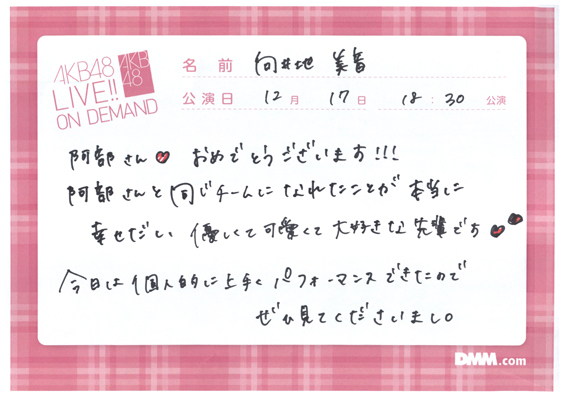 AKB48
LIVE!!
ON DEMAND
AKB
48
名 前 向井地 美音
公演日 12月 17日 18:30 公演
阿部さん♥ おめでとうございます!!!
阿部さんと同じチームになれたことが本当に
幸せだしい 優しくて可愛くて大好きな先輩です♥♥
今日は個人的に上手くパフォーマンスできたので
ぜひ見てくださいまし。
DMM.com